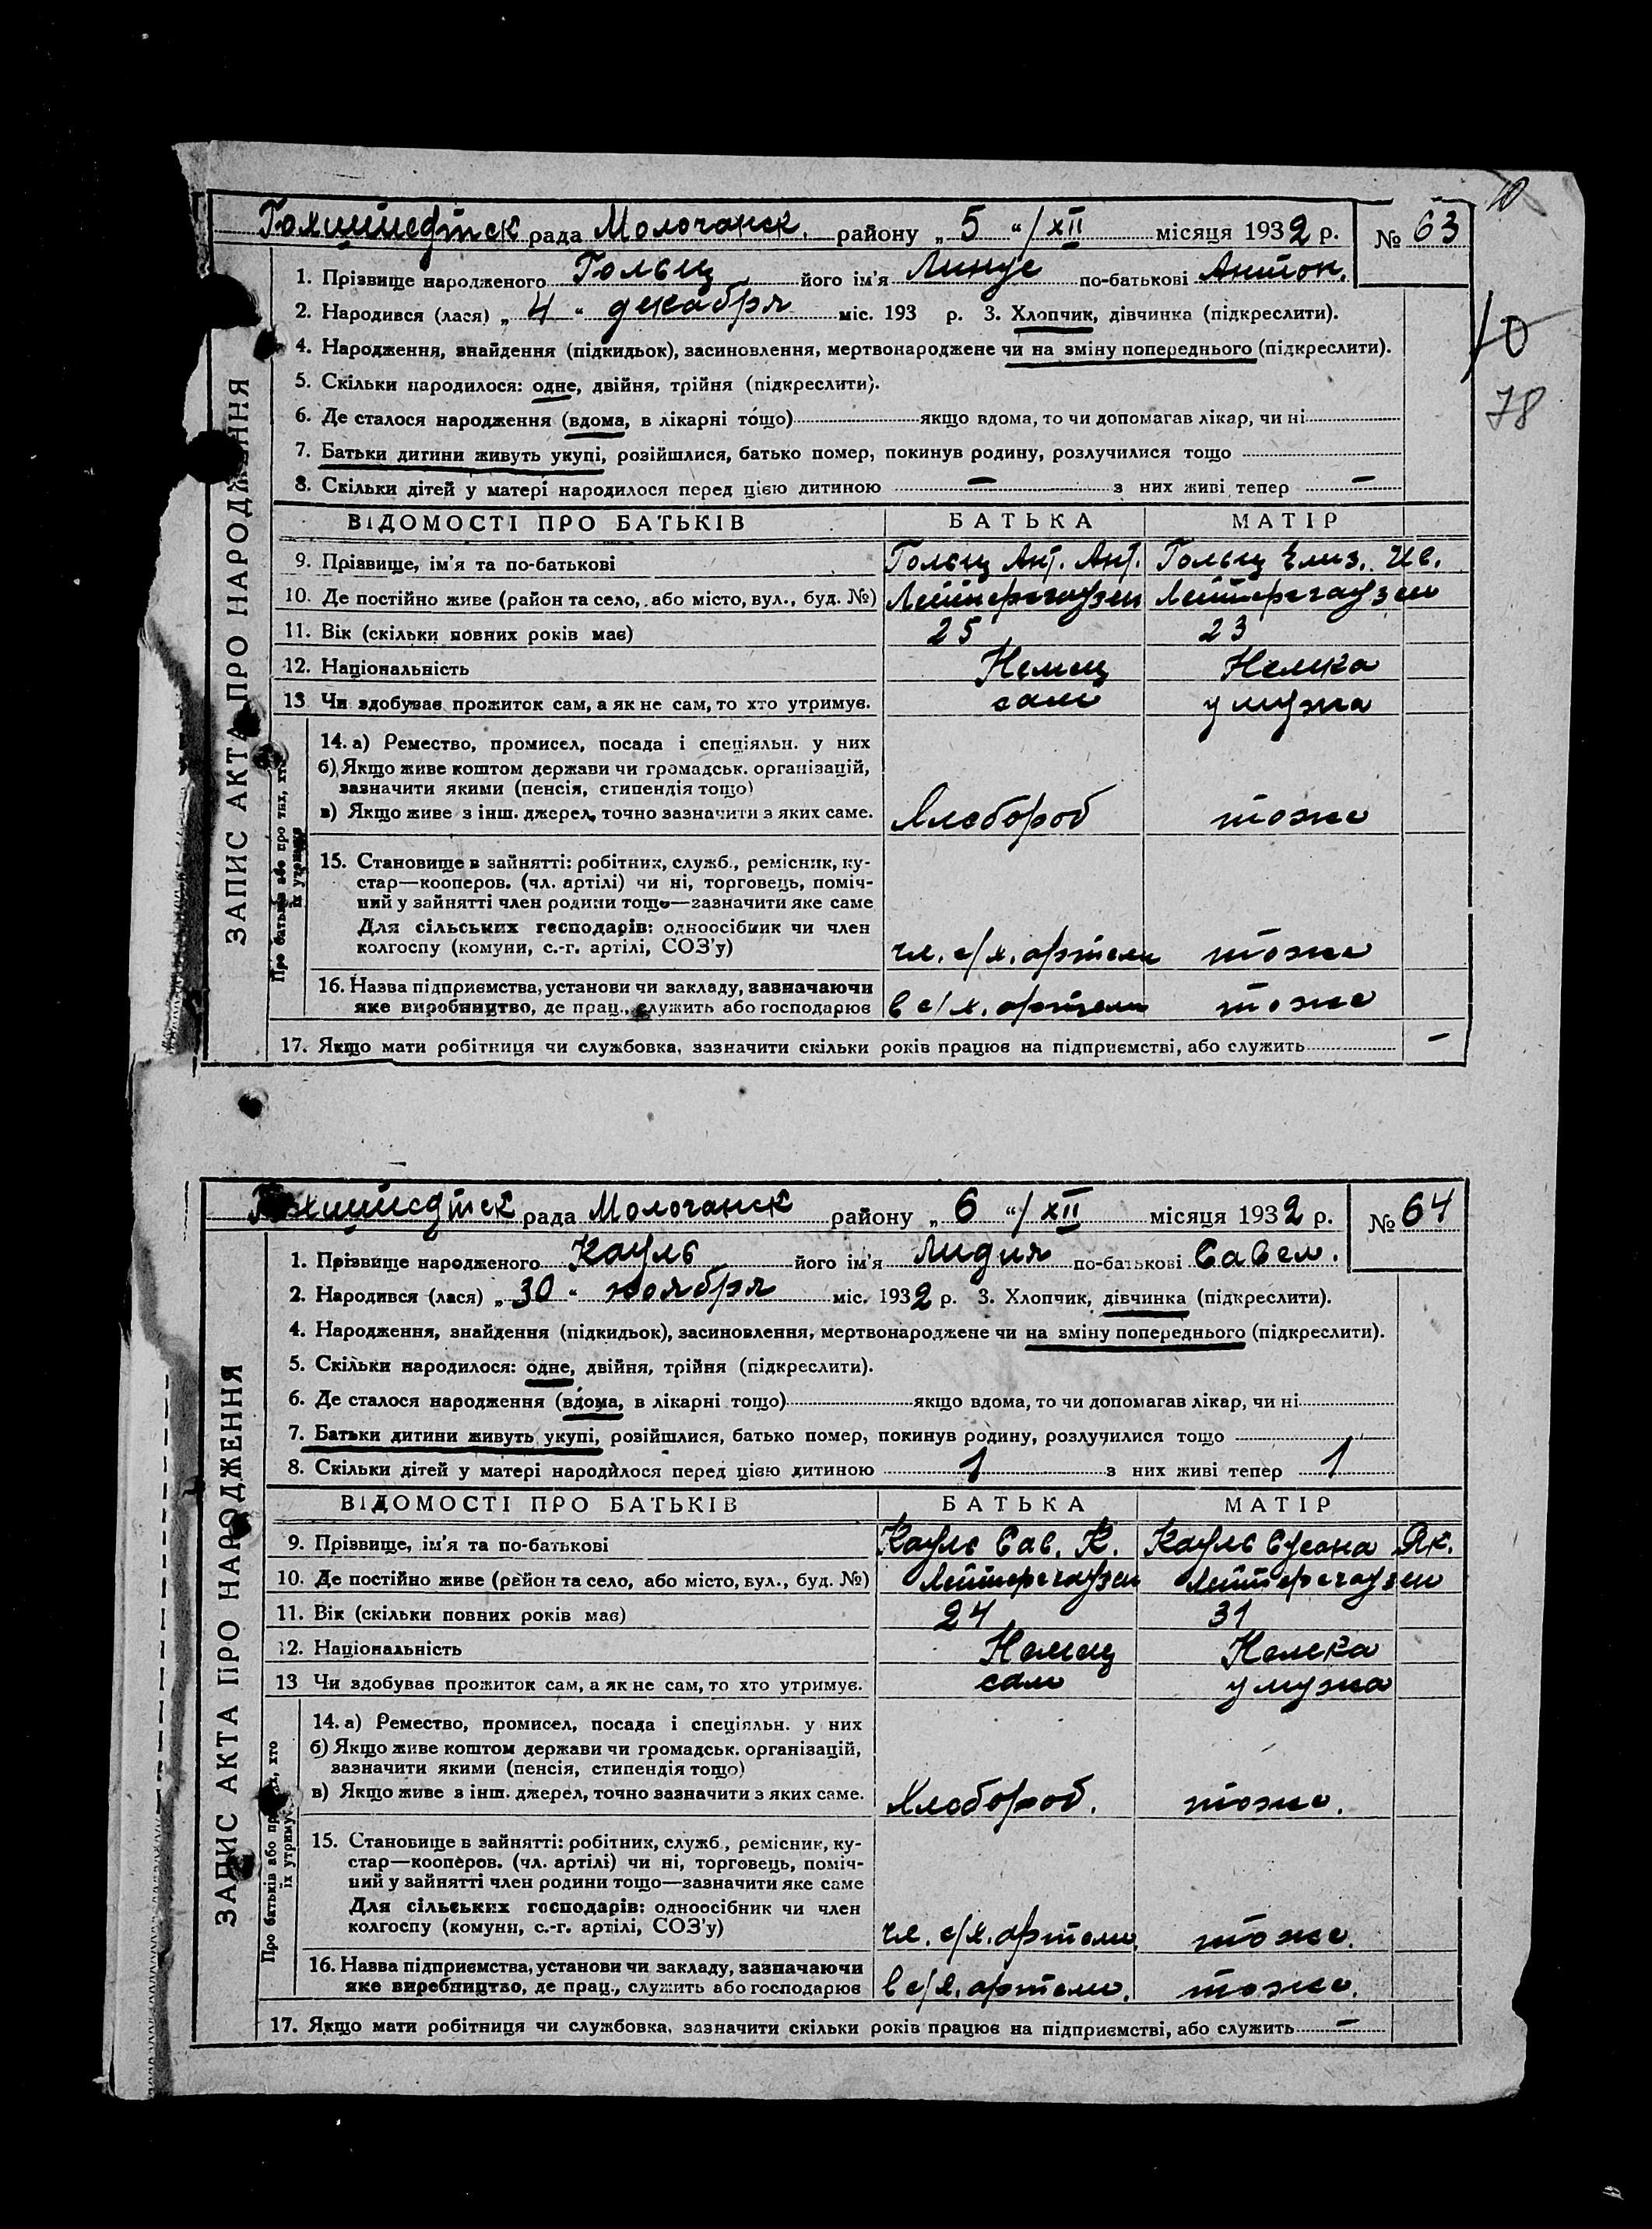 10
Гохштедтск рада Молочанск. району „ 5 “/ XII місяця 1932 р. № 63
1. Прізвище народженого Гольц його ім'я Линус по-батькові Антон.
2. Народився (лася) „ 4 “ декабря міс. 193 р. 3. Хлопчик, дівчинка (підкреслити).
4. Народження, знайдення (підкидьок), засиновлення, мертвонароджене чи на зміну попереднього (підкреслити).
10
5. Скільки народилося: одне, двійня, трійня (підкреслити).
78
6. Де сталося народження (вдома, в лікарні тощо) якщо вдома, то чи допомагав лікар, чи ні
7. Батьки дитини живуть укупі, розійшлися, батько помер, покинув родину, розлучилися тощо
8. Скільки дітей у матері народилося перед цією дитиною — з них живі тепер —
ЗАПИС АКТА ПРО НАРОДЖЕННЯ
ВІДОМОСТІ ПРО БАТЬКІВ БАТЬКА МАТІР
9. Прізвище, ім'я та по-батькові Гольц Ант. Ант. Гольц Елиз. Ив.
10. Де постійно живе (район та село, або місто, вул., буд. №) Лейтерсгаузен Лейтерсгаузен
11. Вік (скільки повних років має) 25 23
12. Національність Немец Немка
13 Чи здобуває прожиток сам, а як не сам, то хто утримує. сам у мужа
Про батьків або про тих, хто
їх утримує
14. а) Ремество, промисел, посада і спеціяльн. у них
б) Якщо живе коштом держави чи громадськ. організацій,
зазначити якими (пенсія, стипендія тощо)
в) Якщо живе з інш. джерел, точно зазначити з яких саме. Хлебороб тоже
15. Становище в зайнятті: робітник, служб., ремісник, ку-
стар—кооперов. (чл. артілі) чи ні, торговець, поміч-
ний у зайнятті член родини тощо—зазначити яке саме
Для сільських господарів: одноосібник чи член
колгоспу (комуни, с.-г. артілі, СОЗ'у) чл. с/х. артели тоже
16. Назва підприємства, установи чи закладу, зазначаючи
яке виробництво, де прац., служить або господарює в с/х. артели тоже
17. Якщо мати робітниця чи службовка, зазначити скільки років працює на підприємстві, або служить —
Гохштедтск рада Молочанск району „ 6 “/ XII місяця 1932 р. № 64
1. Прізвище народженого Кауль його ім'я Лидия по-батькові Савел.
2. Народився (лася) „ 30 “ ноября міс. 1932 р. 3. Хлопчик, дівчинка (підкреслити).
4. Народження, знайдення (підкидьок), засиновлення, мертвонароджене чи на зміну попереднього (підкреслити).
5. Скільки народилося: одне, двійня, трійня (підкреслити).
6. Де сталося народження (вдома, в лікарні тощо) якщо вдома, то чи допомагав лікар, чи ні
7. Батьки дитини живуть укупі, розійшлися, батько помер, покинув родину, розлучилися тощо
8. Скільки дітей у матері народилося перед цією дитиною 1 з них живі тепер 1
ЗАПИС АКТА ПРО НАРОДЖЕННЯ
ВІДОМОСТІ ПРО БАТЬКІВ БАТЬКА МАТІР
9. Прізвище, ім'я та по-батькові Кауль Сав. К. Кауль Сусана Як.
10. Де постійно живе (район та село, або місто, вул., буд. №) Лейтерсгаузен Лейтерсгаузен
11. Вік (скільки повних років має) 24 31
12. Національність Немец Немка
13 Чи здобуває прожиток сам, а як не сам, то хто утримує. сам у мужа
Про батьків або про тих, хто
їх утримує
14. а) Ремество, промисел, посада і спеціяльн. у них
б) Якщо живе коштом держави чи громадськ. організацій,
зазначити якими (пенсія, стипендія тощо)
в) Якщо живе з інш. джерел, точно зазначити з яких саме. Хлебороб. тоже.
15. Становище в зайнятті: робітник, служб., ремісник, ку-
стар—кооперов. (чл. артілі) чи ні, торговець, поміч-
ний у зайнятті член родини тощо—зазначити яке саме
Для сільських господарів: одноосібник чи член
колгоспу (комуни, с.-г. артілі, СОЗ'у) чл. с/х. артели. тоже.
16. Назва підприємства, установи чи закладу, зазначаючи
яке виробництво, де прац., служить або господарює в с/х. артели. тоже.
17. Якщо мати робітниця чи службовка, зазначити скільки років працює на підприємстві, або служить —